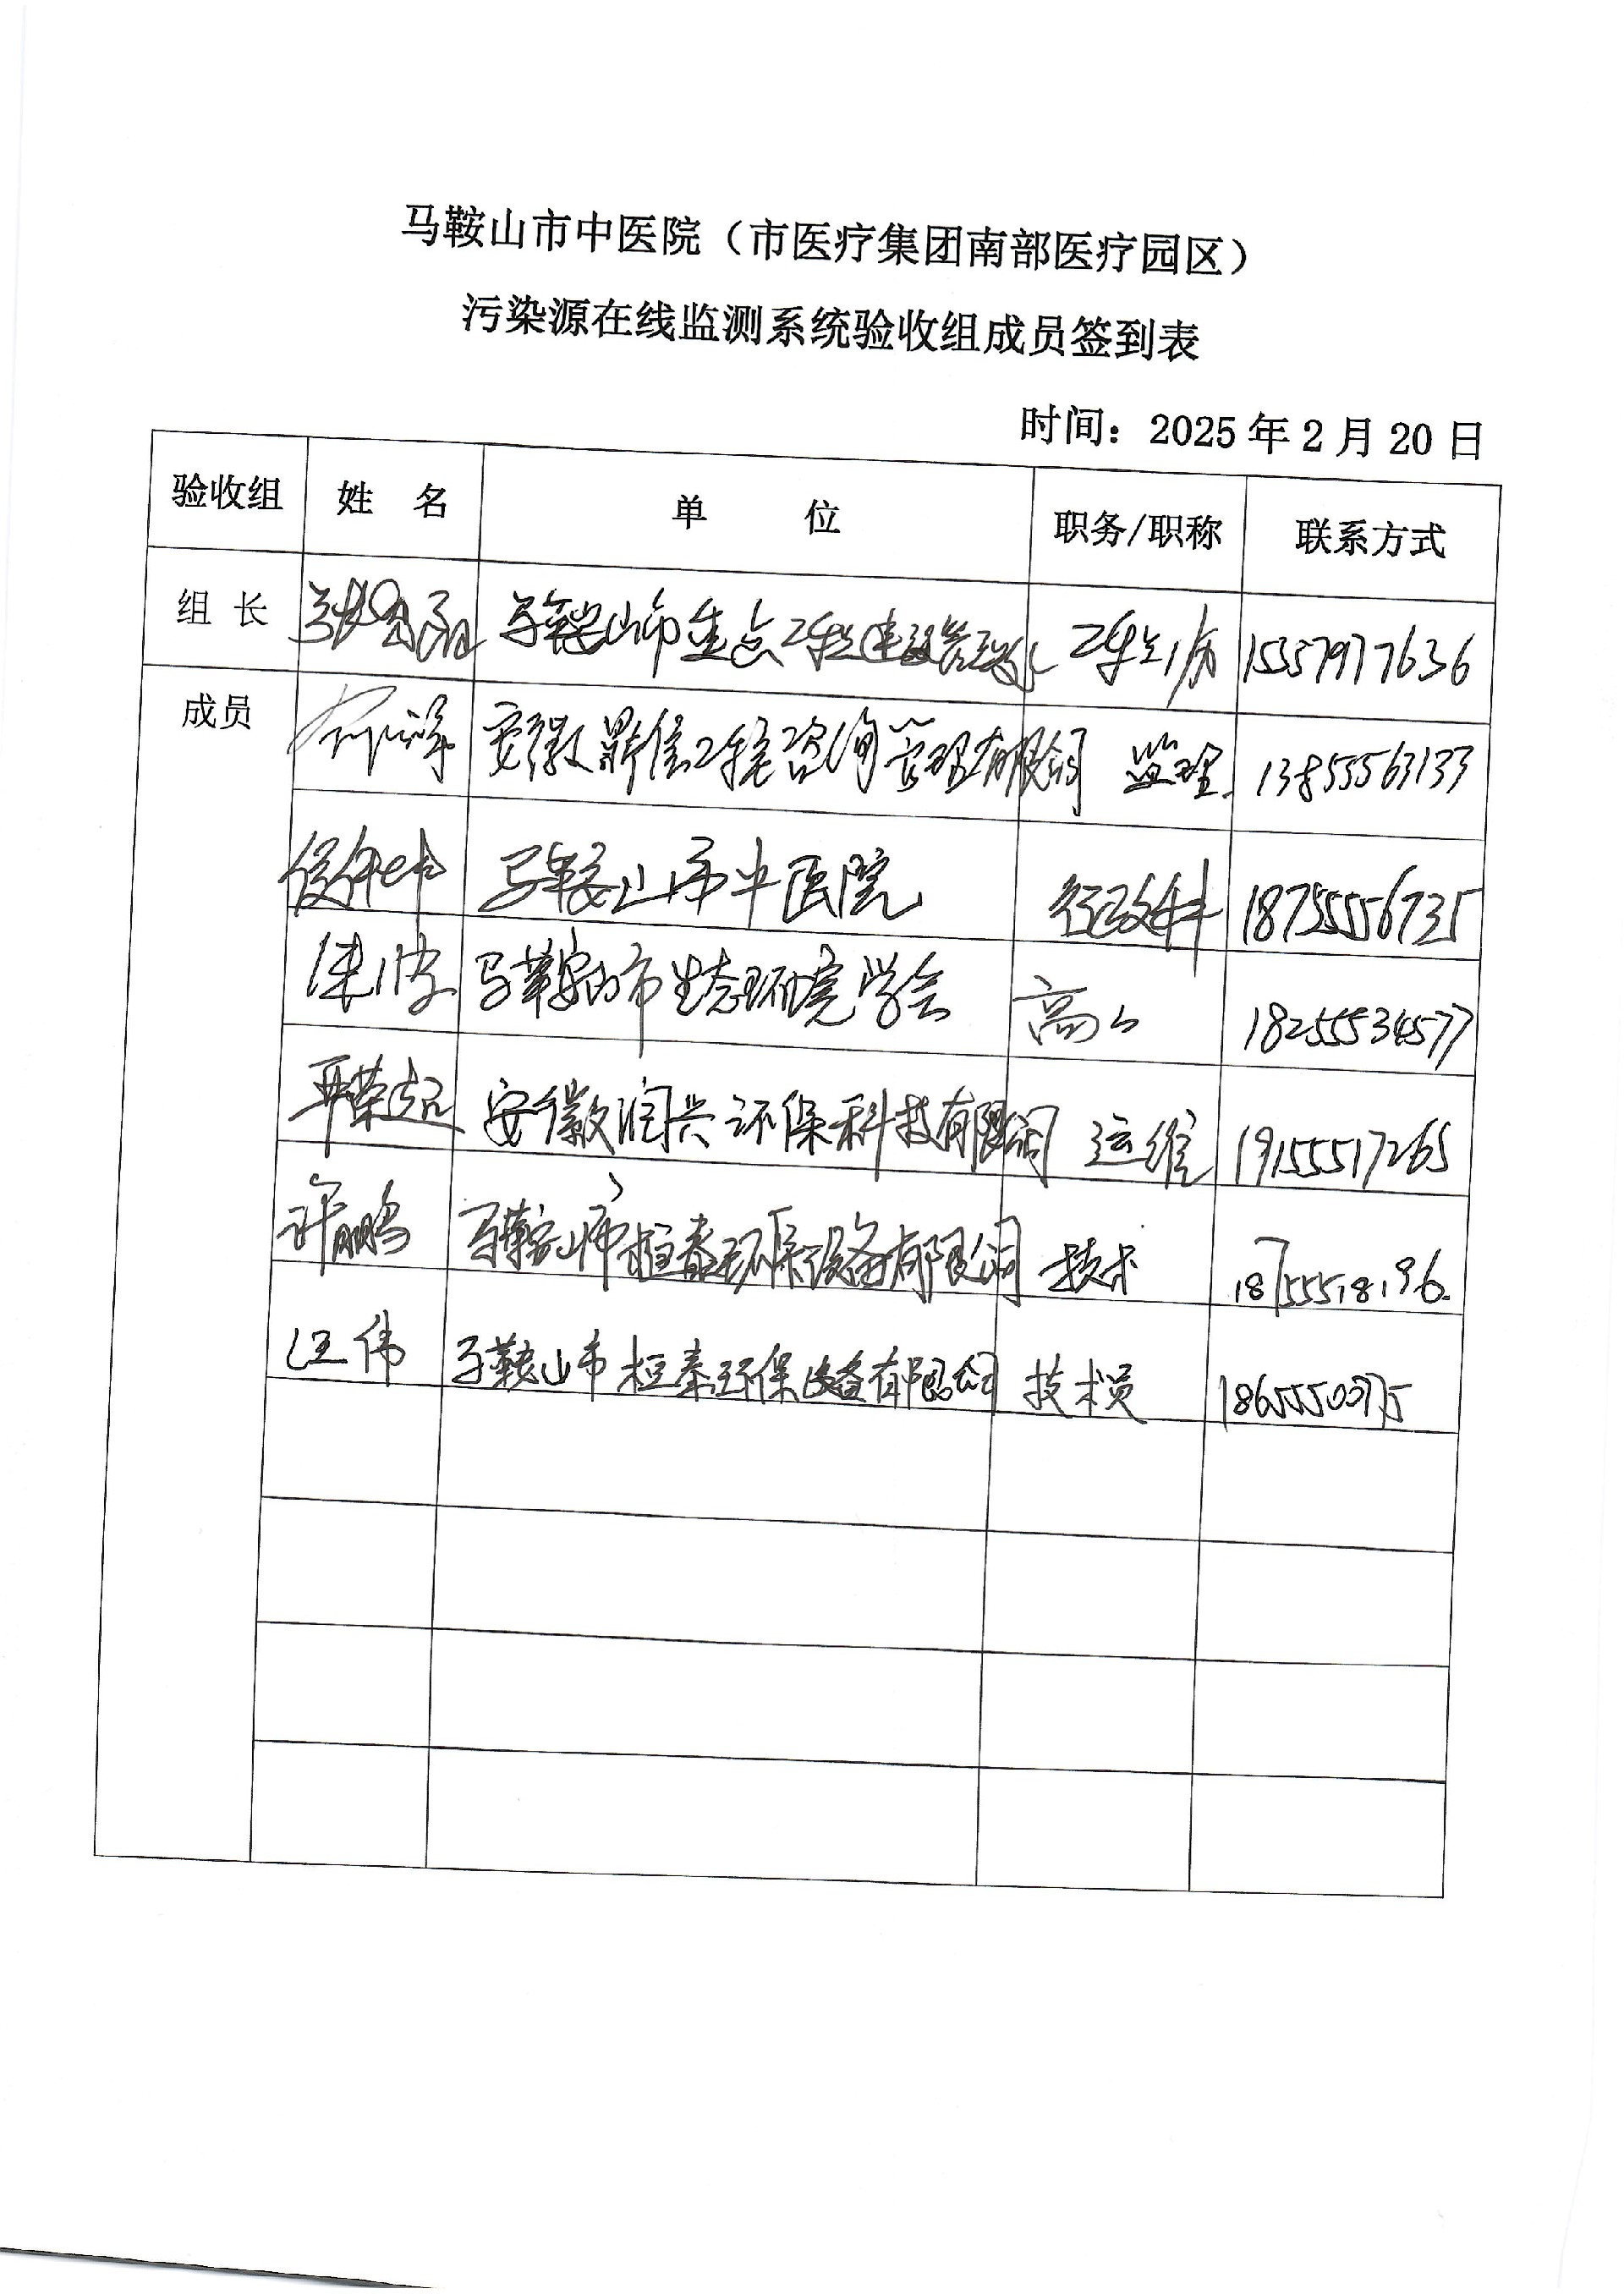 马鞍山市中医院（市医疗集团南部医疗园区）
污染源在线监测系统验收组成员签到表
时间：2025年2月20日
验收组 姓 名 单 位 职务/职称 联系方式
组 长 马鞍山市重点工程建设管理 15357977636
成员 安徽鼎信工程咨询管理有限公司 监理 13855563133
马鞍山市中医院 行政科 18755556735
马鞍山市生态环境学会 高工 18255534577
安徽润兴环保科技有限公司 运维 19155517265
许鹏 马鞍山市桓泰环保设备有限公司 技术 18755518196
汪伟 马鞍山市桓泰环保设备有限公司 技术员